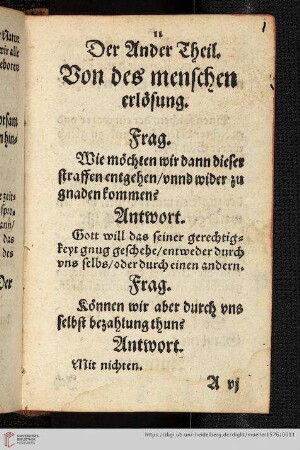 11
1
Der Ander Theil.
Von des menschen
erlösung.
Frag.
Wie möchten wir dann dieser
straffen entgehen/vnnd wider zu
gnaden kommen?
Antwort.
Gott will das seiner gerechtig-
keyt gnug geschehe/entweder durch
vns selbs/oder durch einen andern.
Frag.
Können wir aber durch vns
selbst bezahlung thun?
Antwort.
Mit nichten.
A vj
https://digi.ub.uni-heidelberg.de/diglit/mueller1576/0031